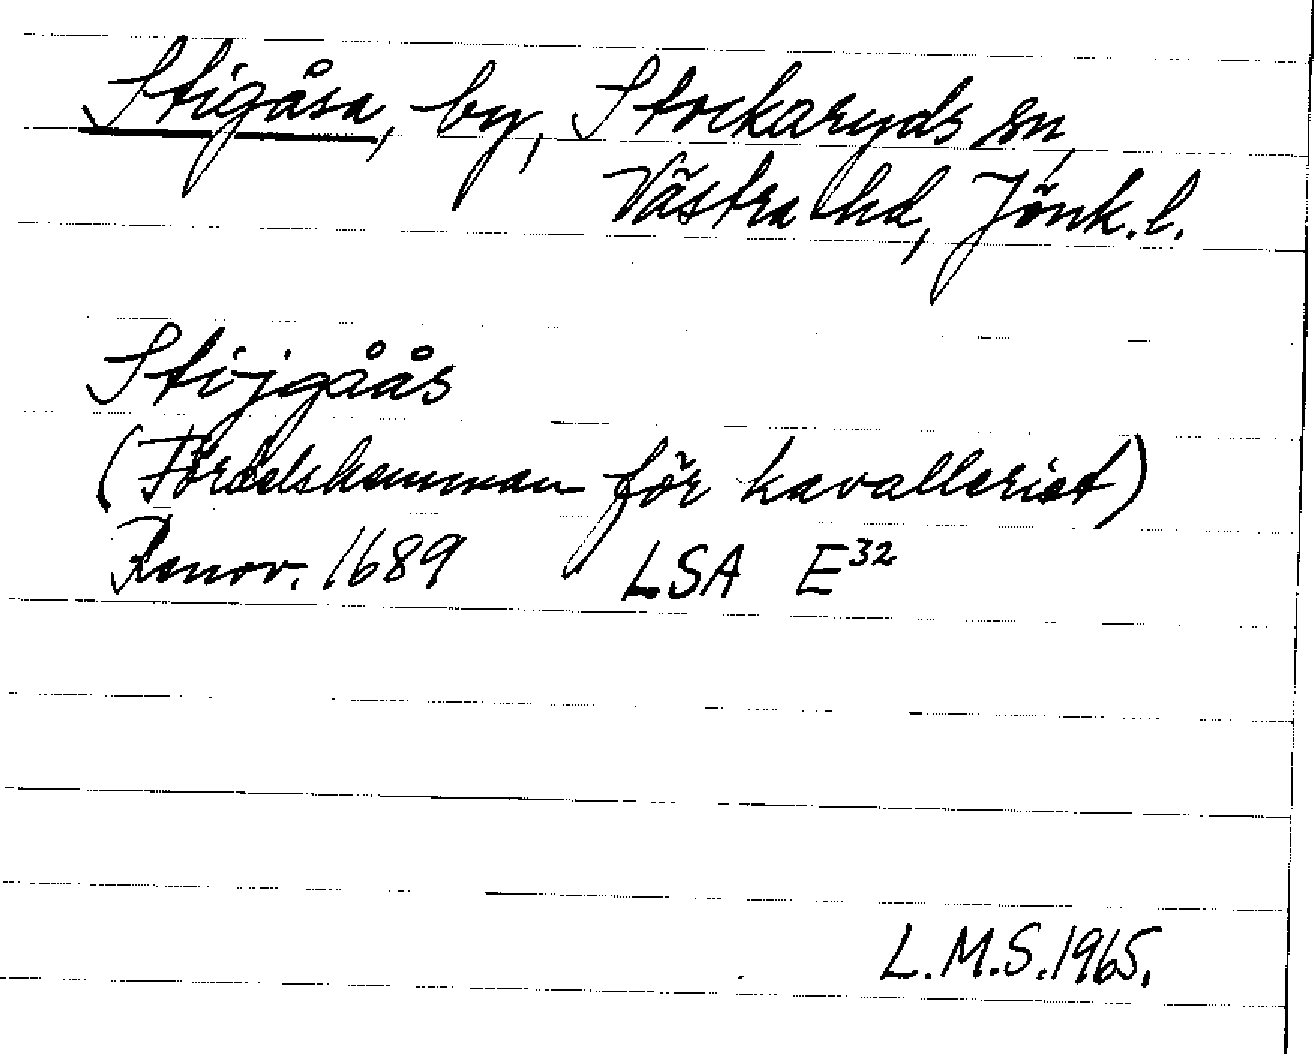 Stigåsa, by, Stockaryds sn,
Västra hd, Jönk. l.
Stijgåås
(Förädshemman för kavalleriet)
Renov. 1689 LSA E32
L.M.S. 1965.